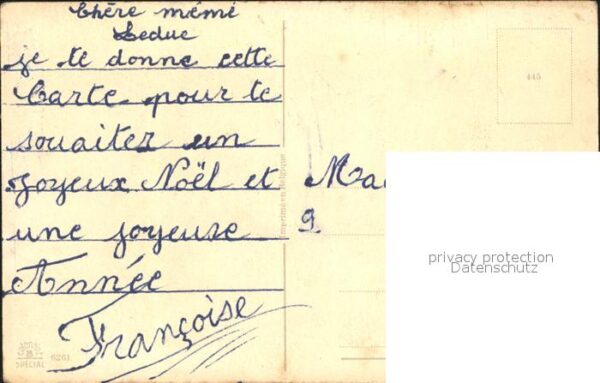 Chère mémé
Leduc
je te donne cette
Carte pour te
souaiter un
Joyeux Noël et
une joyeuse
Année
Françoise
445
Imprimé en Belgique
Ma
9
privacy protection
Datenschutz
SPECIAL
6261